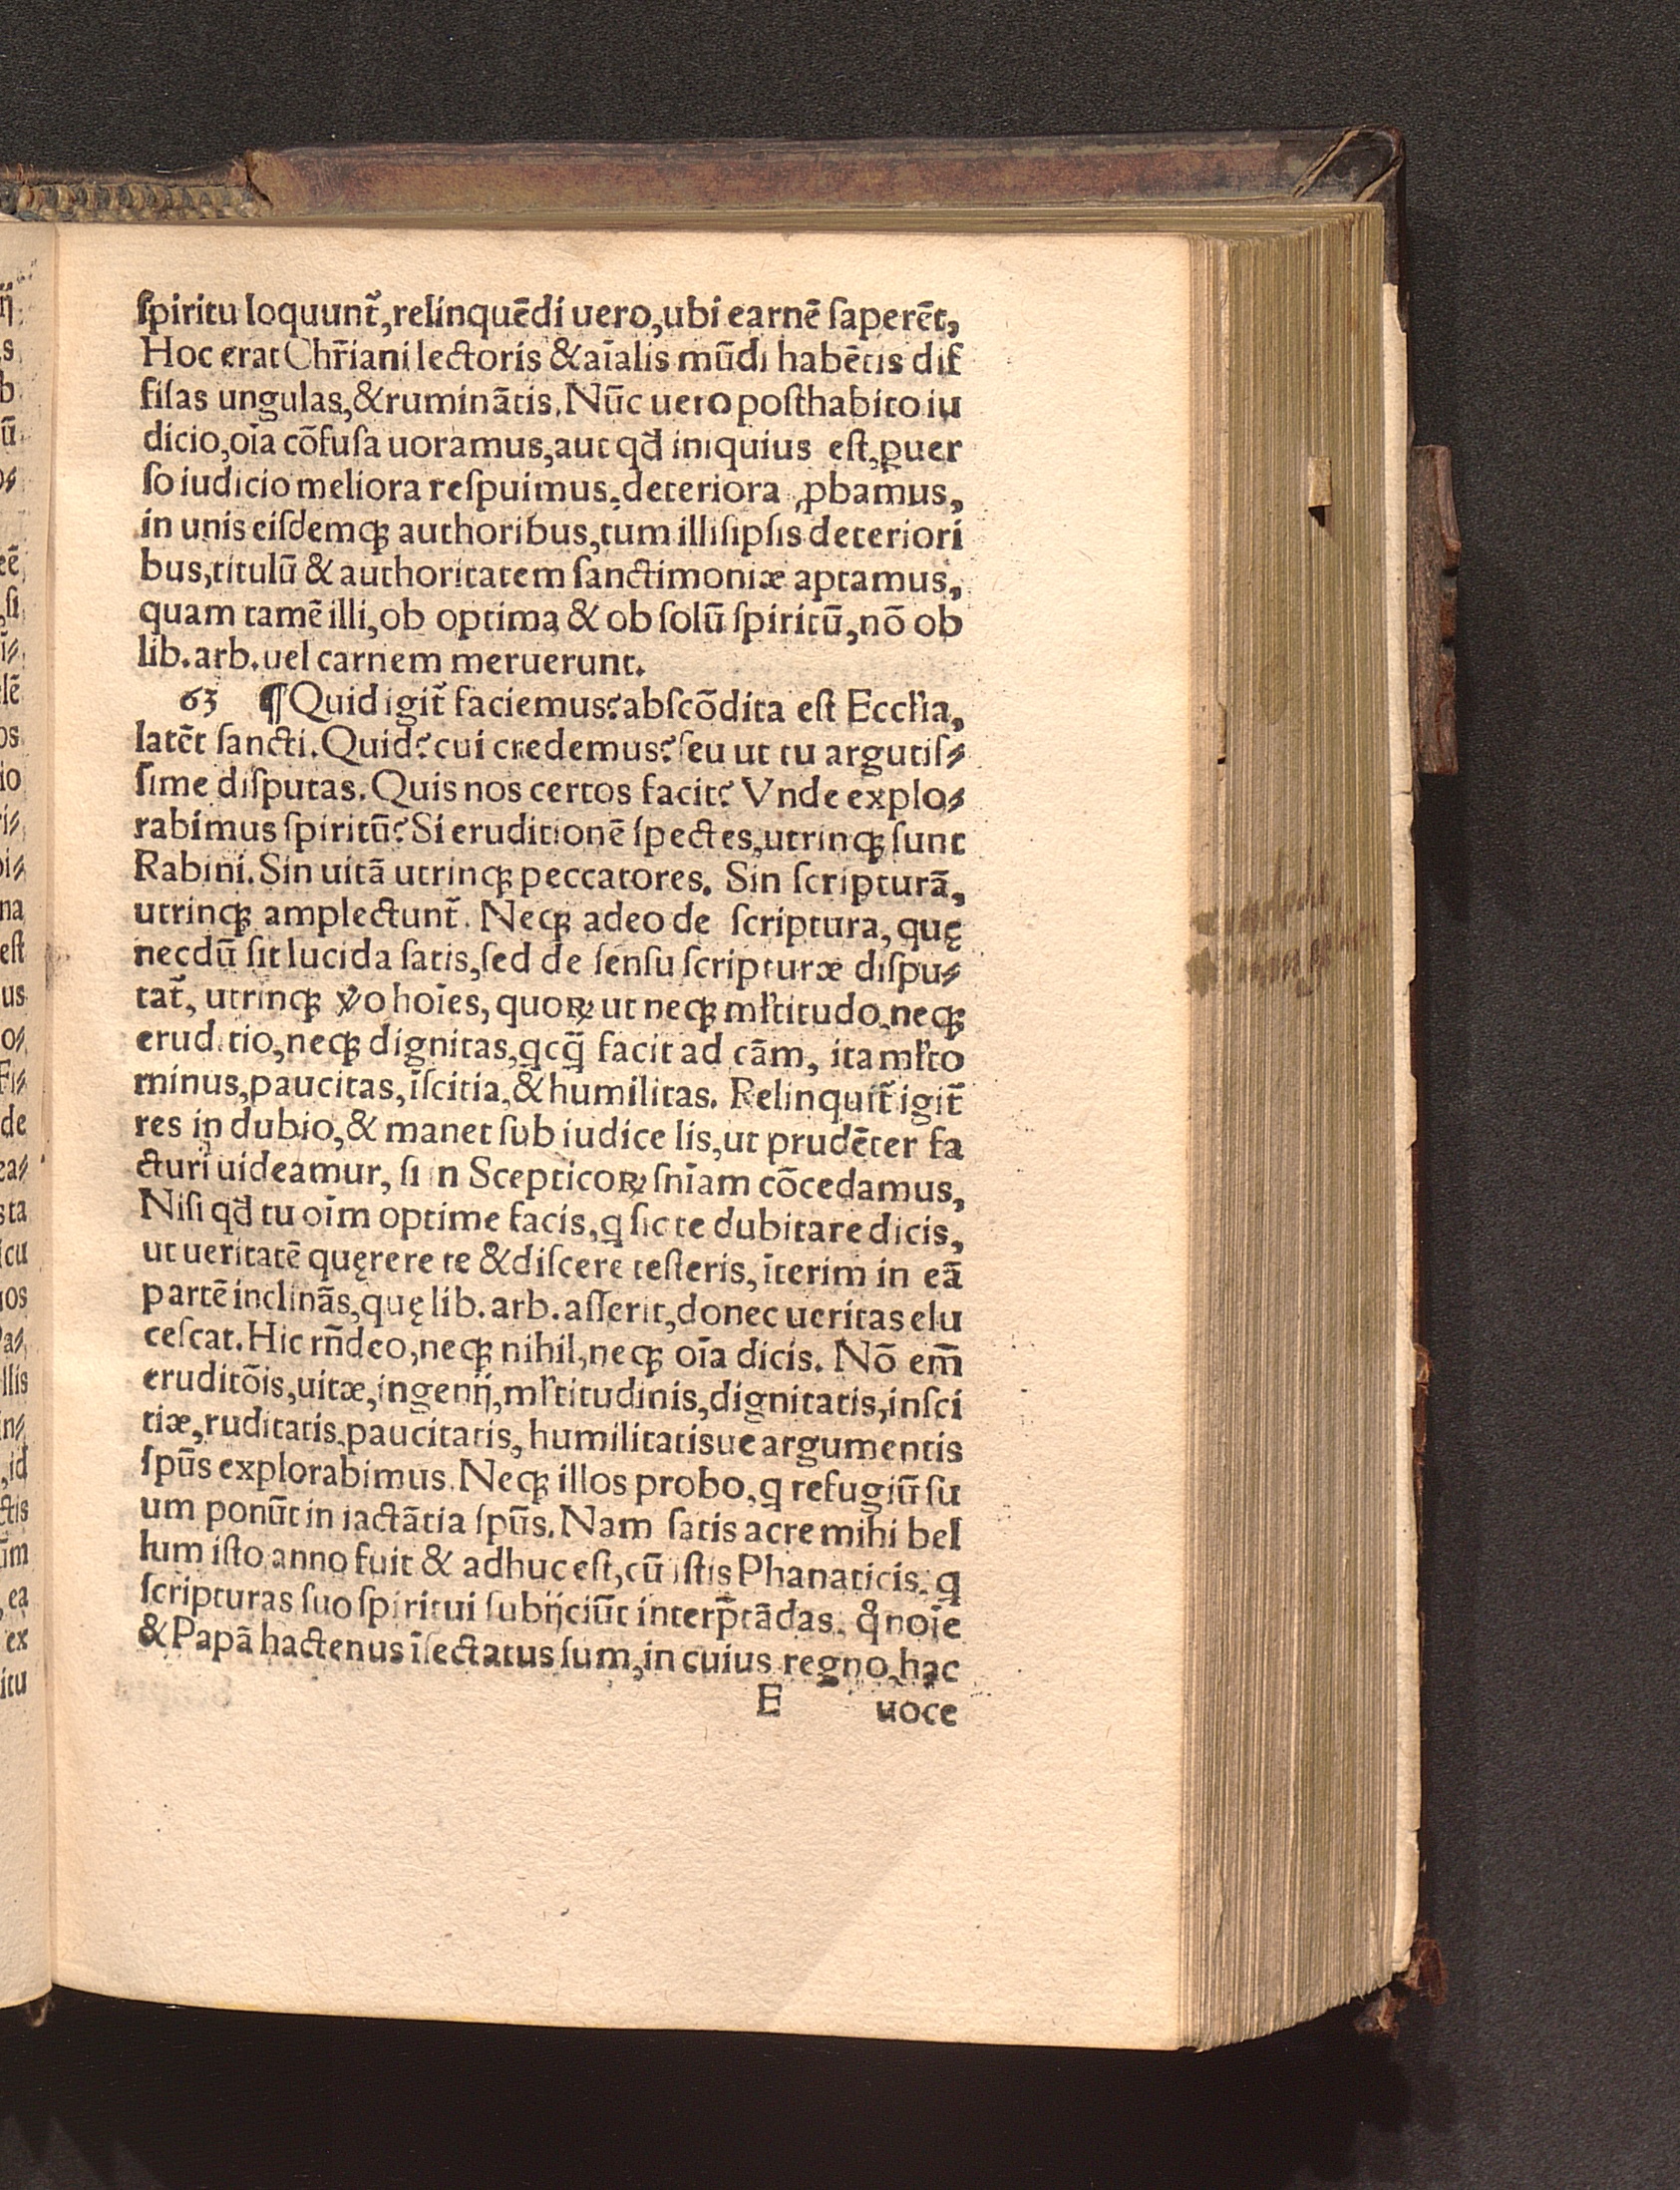 ſpiritu loquunt᷑, relinquēdi uero, ubi earnē ſaperēt,
Hoc erat Chr̄iani lectoris & aīalis mūdi habētis dif
fiſas ungulas, & ruminātis. Nūc uero poſthabito iu
dicio, oīa cōfuſa uoramus, aut qđ iniquius eſt, ꝑuer
ſo iudicio meliora reſpuimus, deteriora ꝓbamus,
in unis eiſdemqꝫ authoribus, tum illis ipſis deteriori
bus, titulū & authoritatem ſanctimoniæ aptamus,
quam tamē illi, ob optima & ob ſolū ſpiritū, nō ob
lib. arb. uel carnem meruerunt.
63 ¶ Quid igit᷑ faciemus? abſcōdita eſt Eccłia,
latēt ſancti. Quid? cui credemus? ſeu ut tu argutiſ⸗
ſime diſputas. Quis nos certos facit? Vnde explo⸗
rabimus ſpiritū? Si eruditionē ſpectes, utrinqꝫ ſunt
Rabini. Sin uitā utrinqꝫ peccatores. Sin ſcripturā,
utrinqꝫ amplectunt᷑. Neqꝫ adeo de ſcriptura, quę
necdū ſit lucida ſatis, ſed de ſenſu ſcripturæ diſpu⸗
tat᷑, utrinqꝫ v̄o hoīes, quoꝝ ut neqꝫ młtitudo, neqꝫ
eruditio, neqꝫ dignitas, qcq̄ facit ad cām, ita młto
minus, paucitas, īſcitia, & humilitas. Relinquit᷑ igit᷑
res in dubio, & manet ſub iudice lis, ut prudēter fa
cturi uideamur, ſi in Scepticoꝝ ſnīam cōcedamus,
Niſi qđ tu oīm optime facis, q ſic te dubitare dicis,
ut ueritatē quęrere te & diſcere teſteris, īterim in eā
partē inclinās, quę lib. arb. aſſerit, donec ueritas elu
ceſcat. Hic rn̄deo, neqꝫ nihil, neqꝫ oīa dicis. Nō em̄
eruditōis, uitæ, ingenij, młtitudinis, dignitatis, inſci
tiæ, ruditatis, paucitatis, humilitatisue argumentis
ſpūs explorabimus. Neqꝫ illos probo, q refugiū ſu
um ponūt in iactātia ſpūs. Nam ſatis acre mihi bel
lum iſto anno fuit & adhuc eſt, cū iſtis Phanaticis, q
ſcripturas ſuo ſpiritui ſubijciūt interp̄tādas, qͦ noīe
& Papā hactenus īſectatus ſum, in cuius regno, hac
E uoce